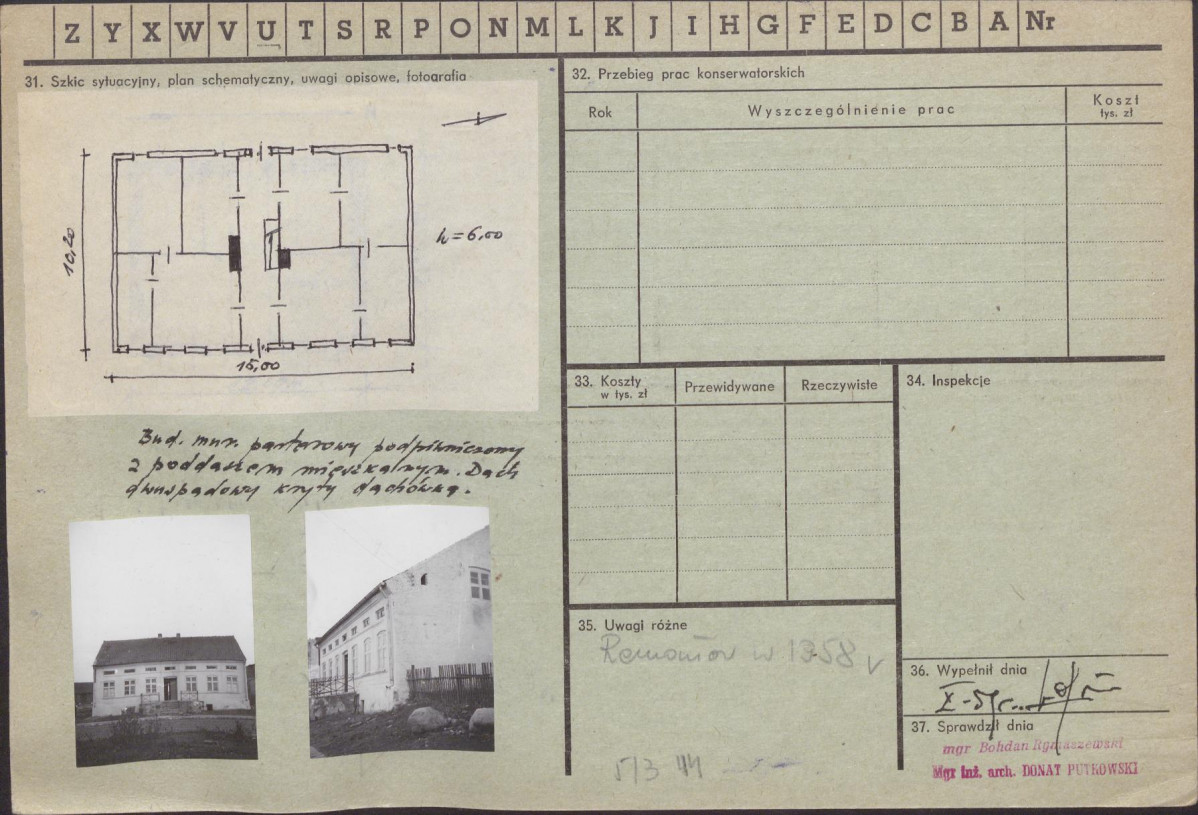 Z Y X W V U T S R P O N M L K J I H G F E D C B A Nr
31. Szkic sytuacyjny, plan schematyczny, uwagi opisowe, fotografia
10,20
h=6,00
15,00
Bud. mur. parterowy podpiwniczony
z poddaszem mieszkalnym. Dach
dwuspadowy kryty dachówką.
32. Przebieg prac konserwatorskich
Rok
Wyszczególnienie prac
Koszt
tys. zł
33. Koszty
w tys. zł
Przewidywane
Rzeczywiste
34. Inspekcje
35. Uwagi różne
w 1958
36. Wypełnił dnia
37. Sprawdził dnia
mgr Bohdan Rymaszewski
Mgr inż. arch. DONAT PUTKOWSKI